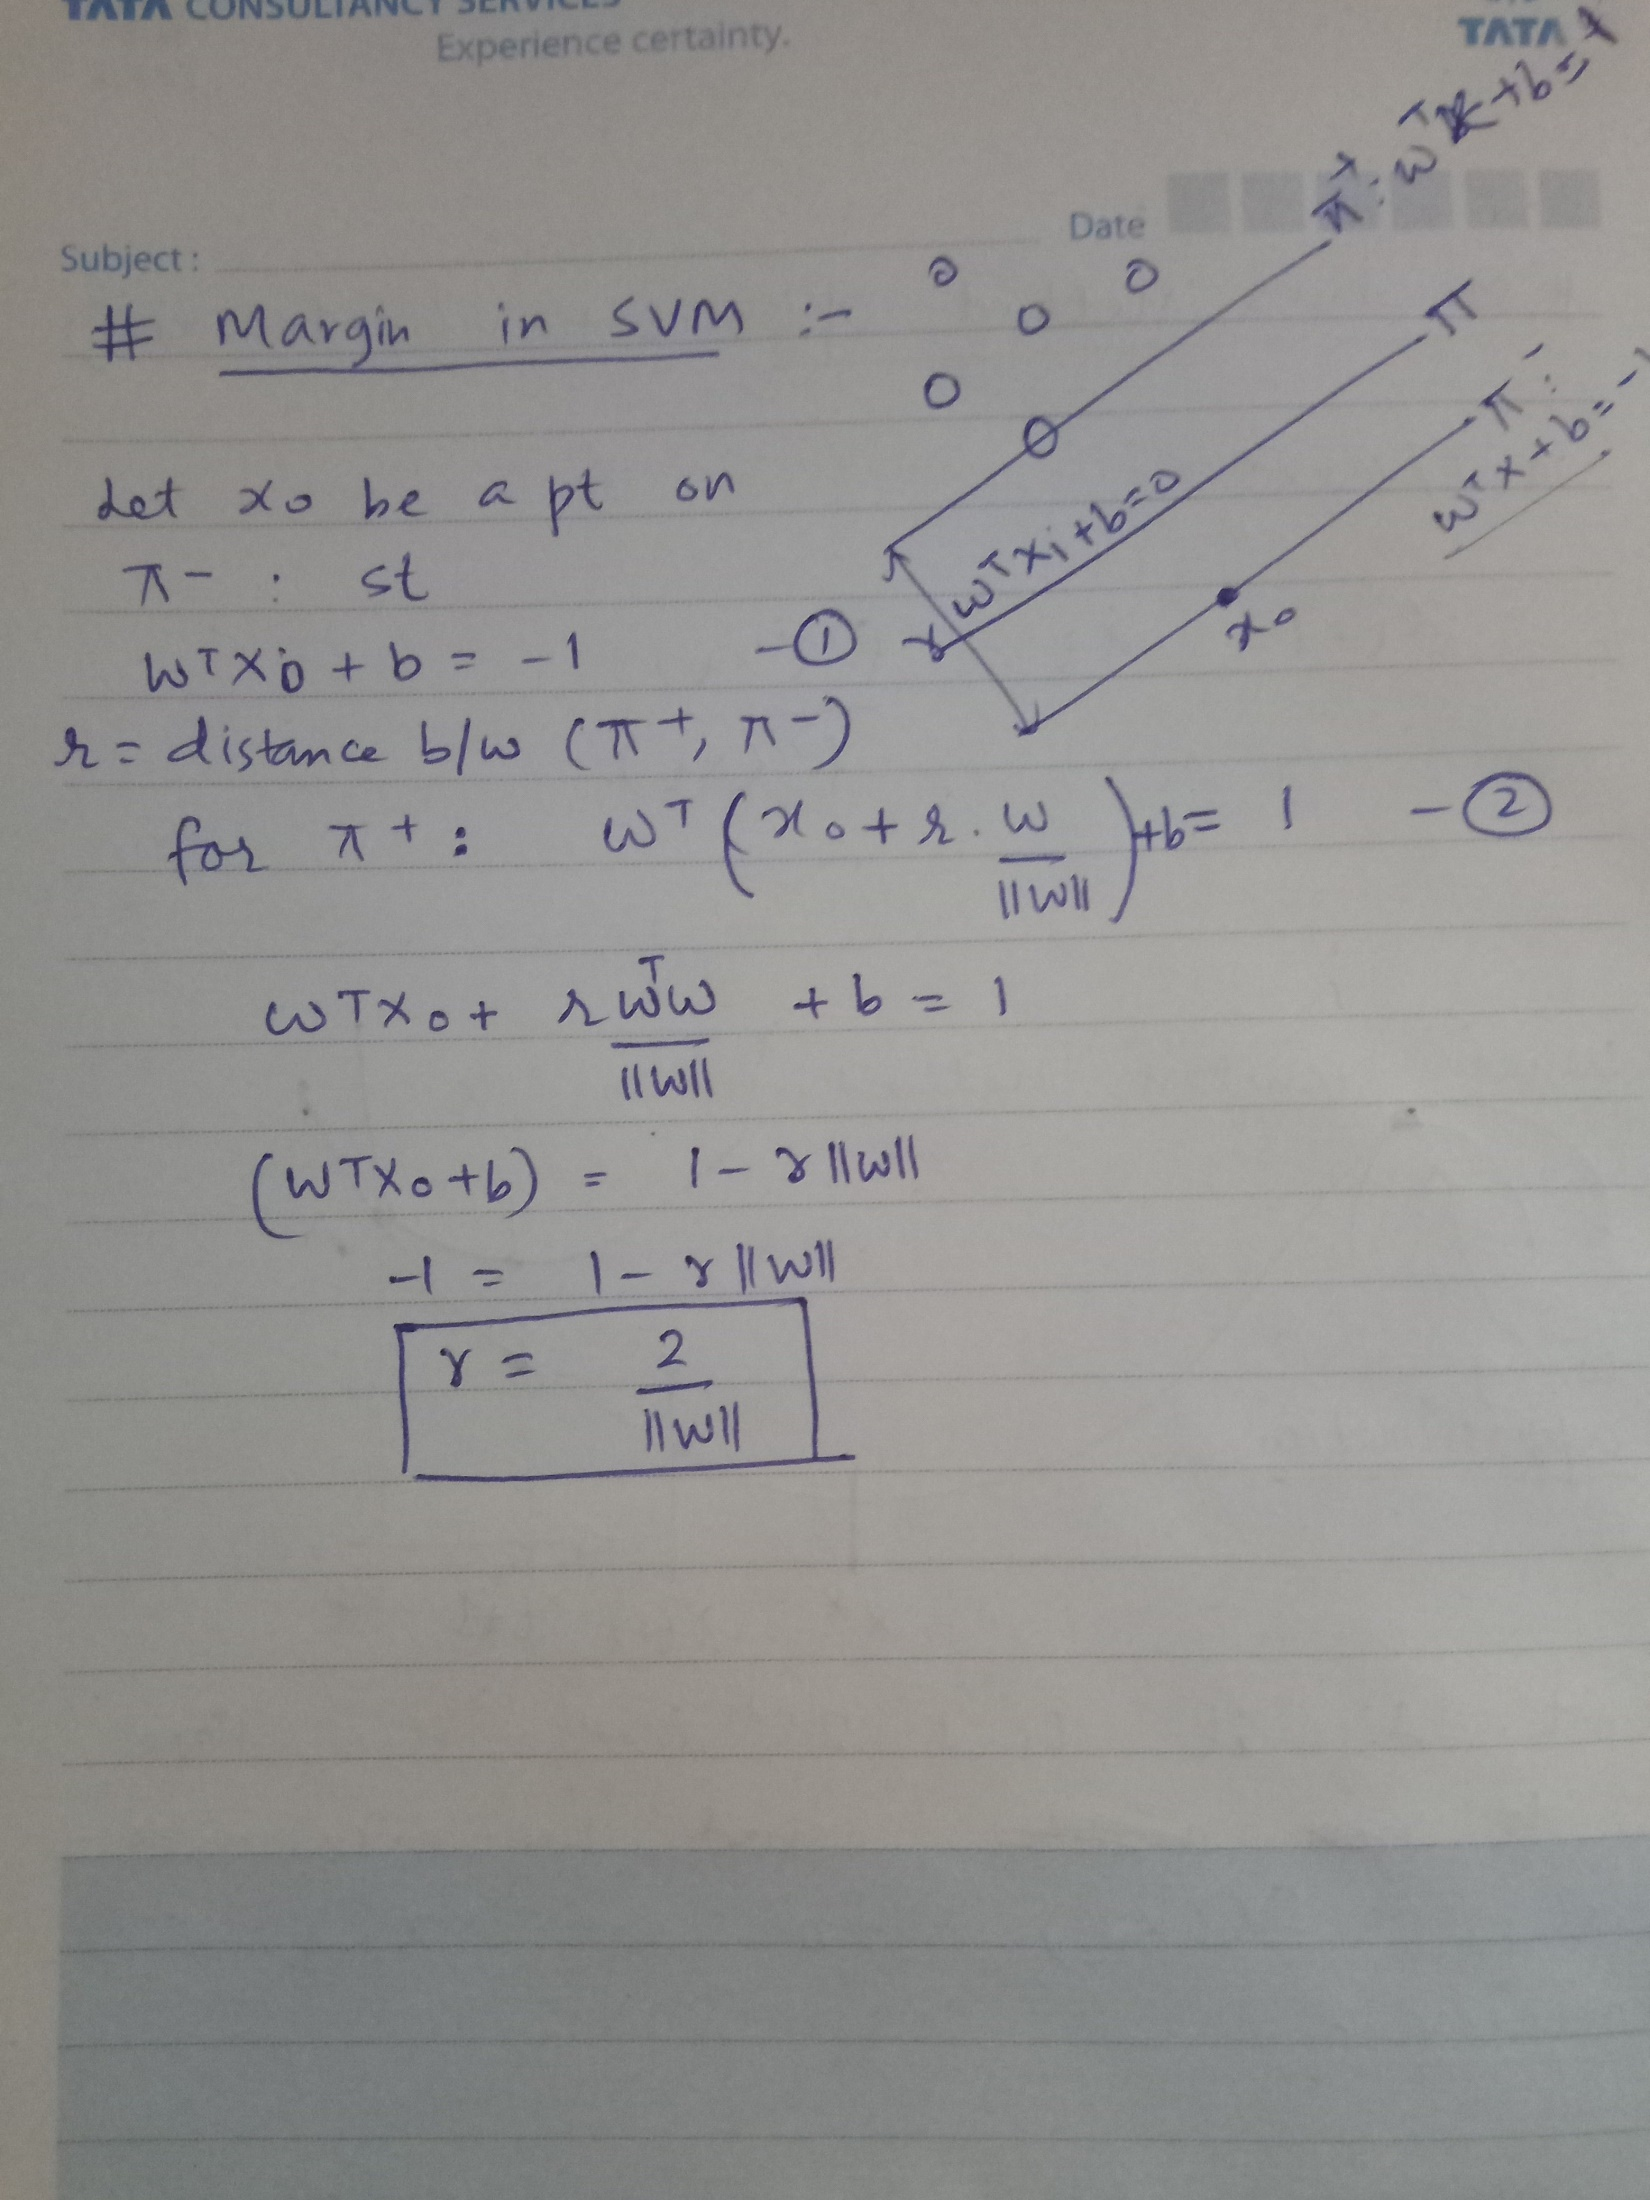 TATA CONSULTANCY SERVICES
Experience certainty.
TATA
Date
Subject :
# Margin in SVM :-
π+ : wTx+b=1
π
π- :
wTx+b=-1
wTxi+b=0
r
x0
Let x0 be a pt on
π- : st
wTx0 + b = -1 -①
r = distance b/w (π+, π-)
for π+ : wT (x0 + r. w/||w||) +b= 1 -②
wTx0 + r wTw/||w|| + b = 1
(wTx0+b) = 1 - r||w||
-1 = 1 - r||w||
r = 2/||w||